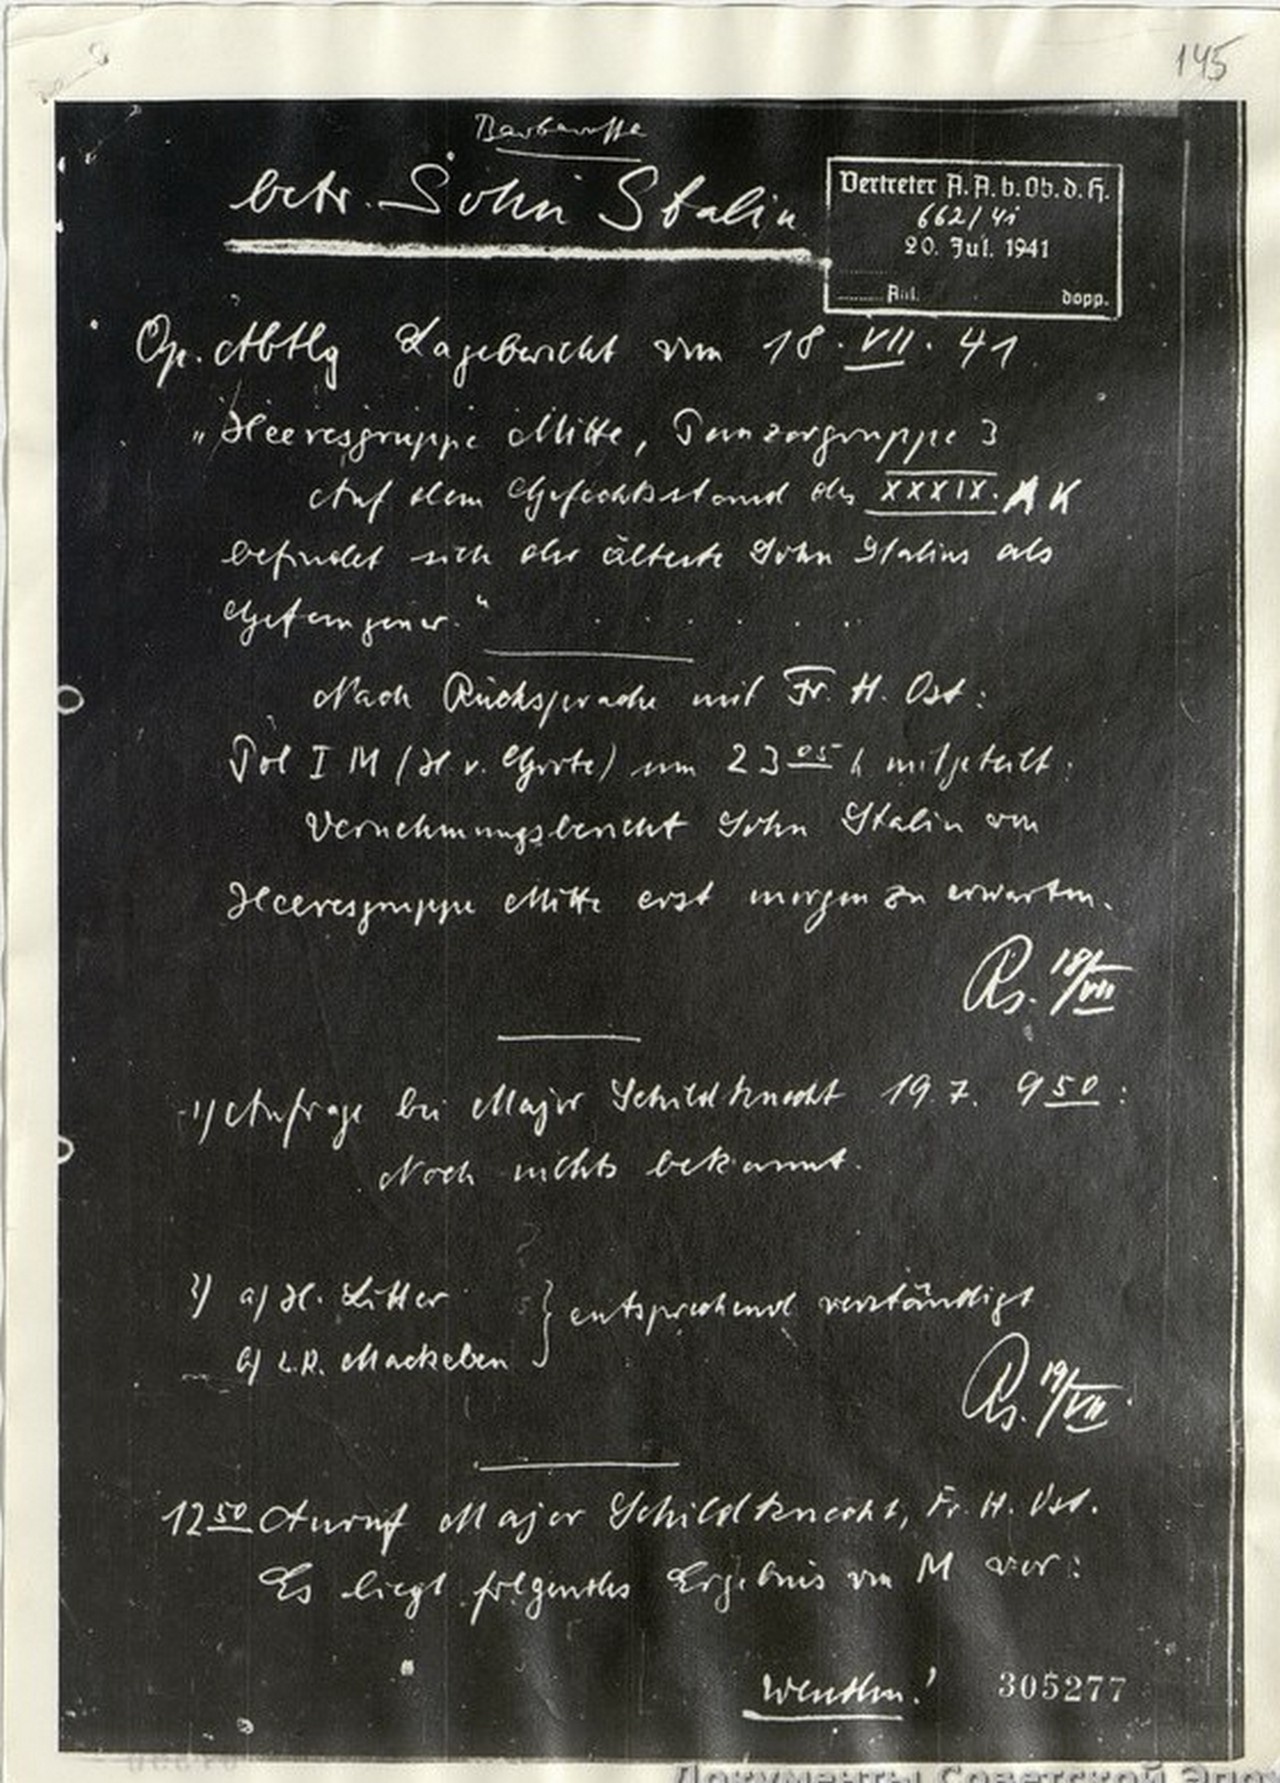 145
Barbarossa
betr. Sohn Stalin
Vertreter A. A. b. Ob. d. H.
662/41
20. Jul. 1941
Anl. dopp.
Op. Abtlg Lagebericht vom 18. VII. 41
„Heeresgruppe Mitte, Panzergruppe 3
Auf dem Gefechtsstand des XXXIX. AK
befindet sich der älteste Sohn Stalins als
Gefangener."
Nach Rücksprache mit Fr. H. Ost:
Pol I M (H. v. Grote) um 23 05 h mitgeteilt:
Vernehmungsbericht Sohn Stalin von
Heeresgruppe Mitte erst morgen zu erwarten.
18/VII
1) Anfrage bei Major Schildknecht 19. 7. 9 50:
Noch nichts bekannt.
2) a) H. Litter } entsprechend verständigt
b) L.R. Mackeben
19/VII
12 50 Anruf Major Schildknecht, Fr. H. Ost.
Es liegt folgendes Ergebnis von M vor:
wenden!
305277
Документы Советской Эпох